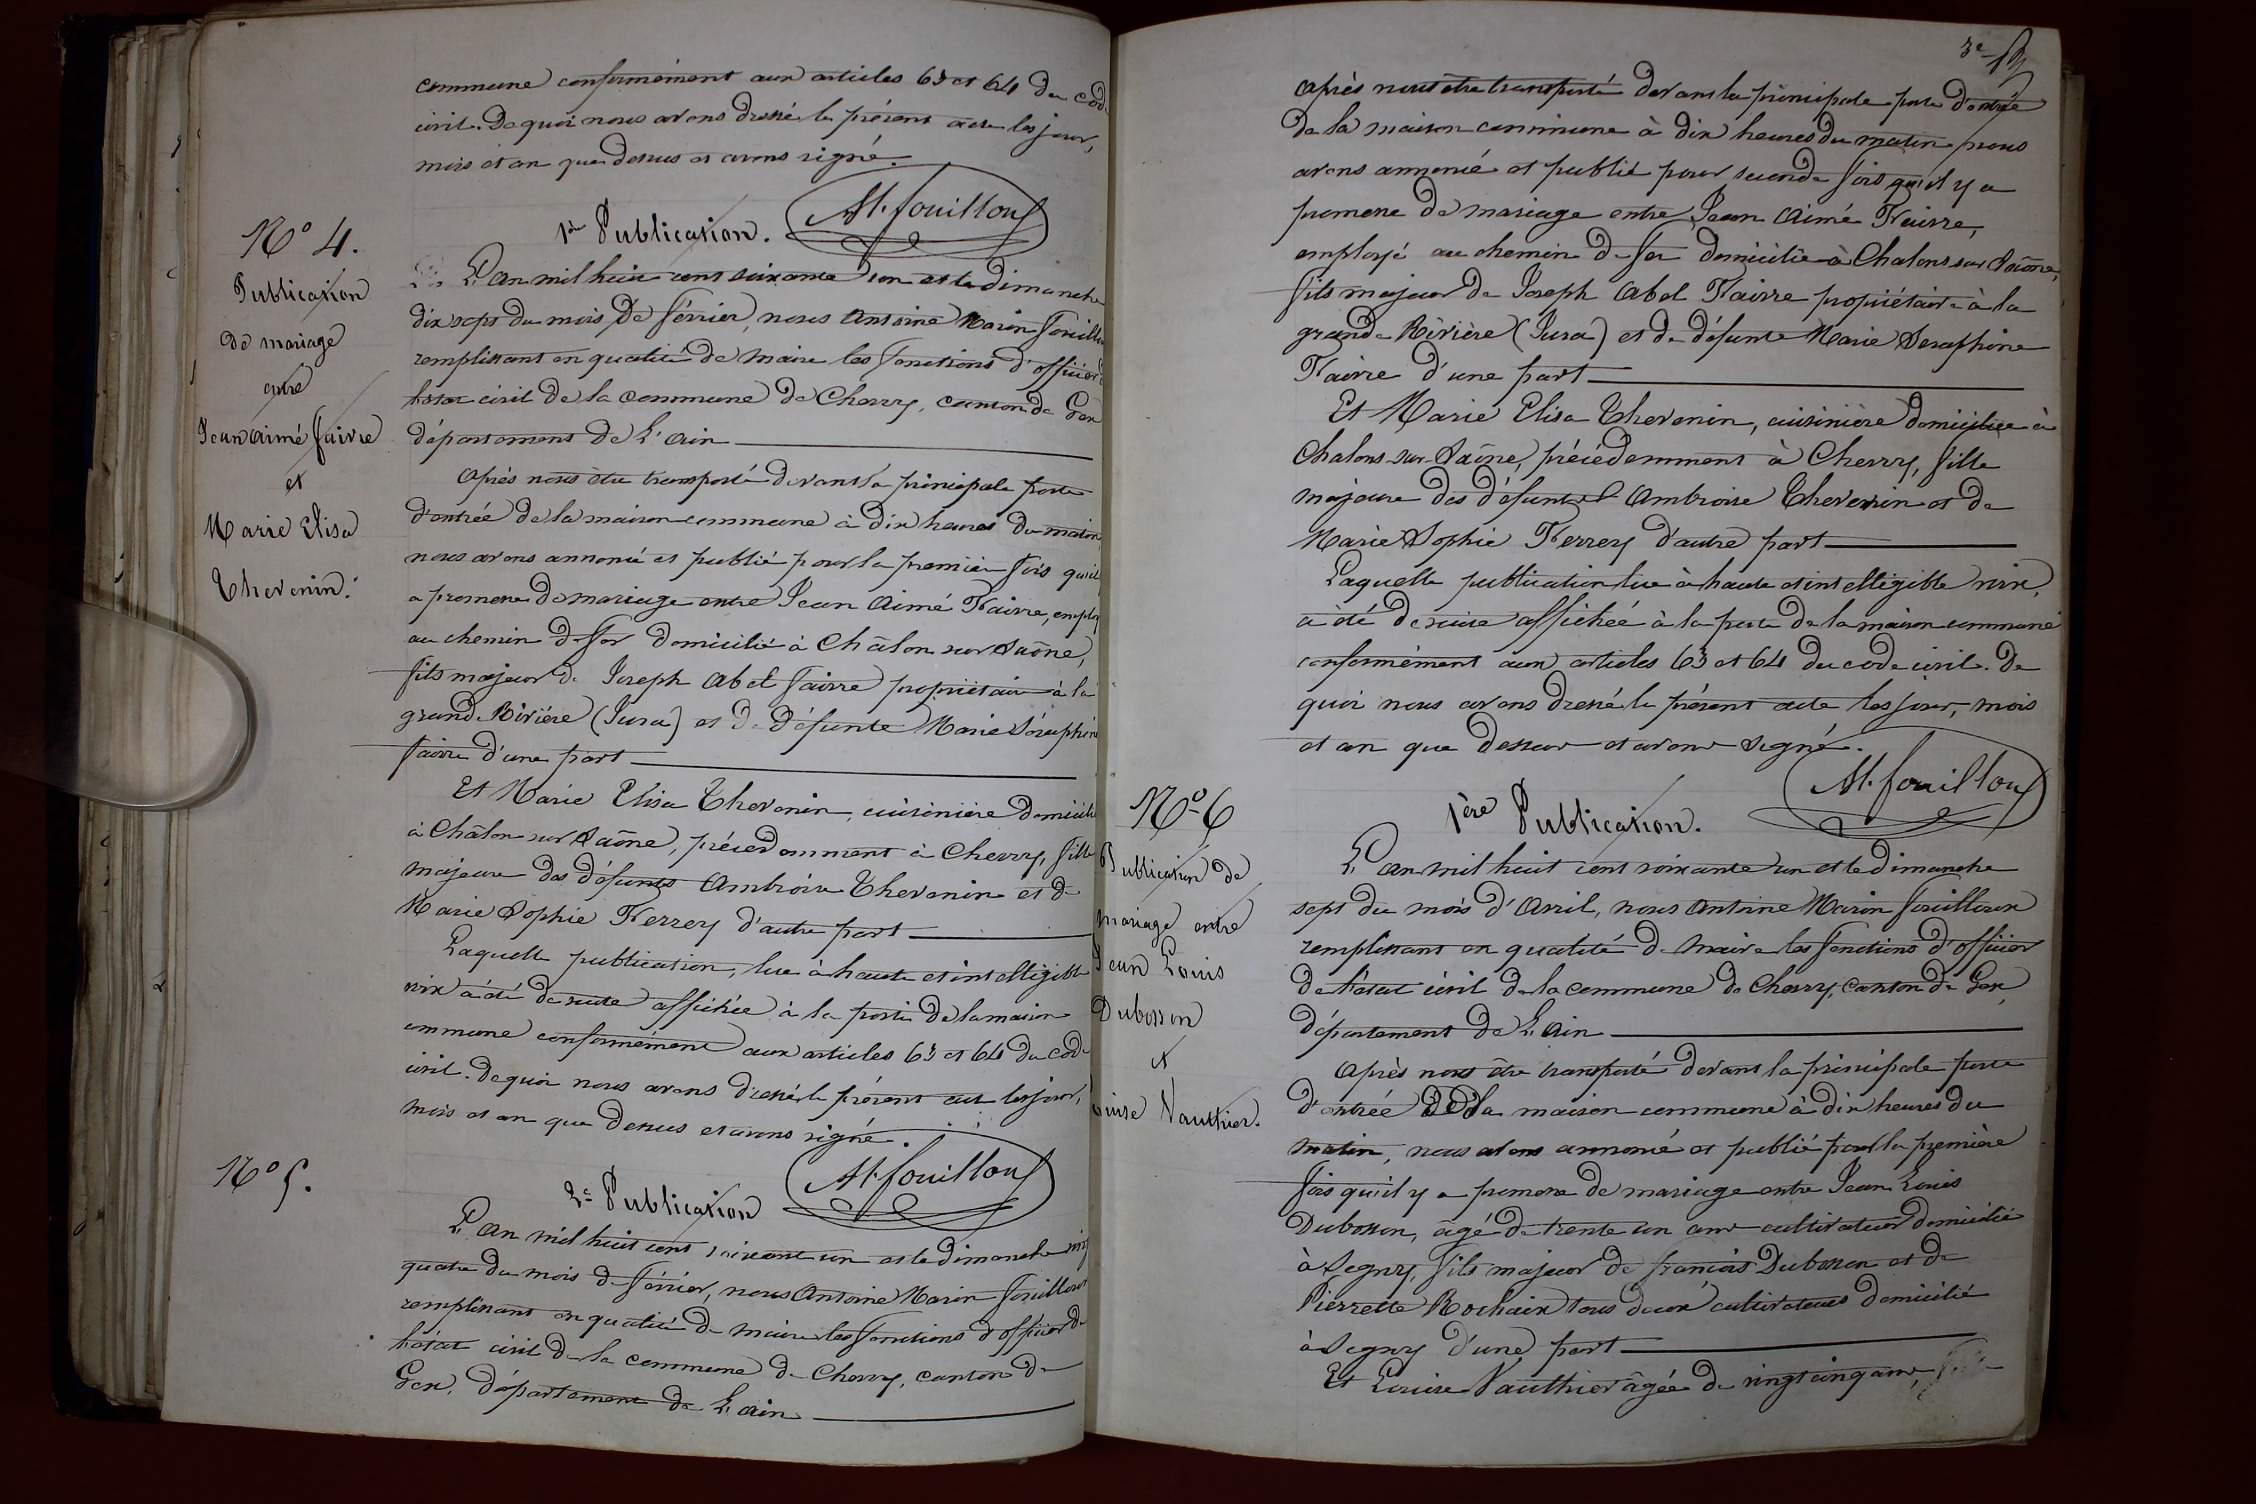 commune conformément aux articles 63 et 64 du cod
civil. De quoi nous avons dressé le présent acte les jour,
mois et an que dessus et avons signé.
At. fouilloux
N° 4.
Publication
de mariage
entre
Jean aimé faivre
et
Marie Elisa
Thevenin.
1ère Publication.
L'an mil huit cent soixante un et le dimanche
dix sept du mois de février, nous Antoine Marin fouillou
remplissant en qualité de maire les fonctions d'officier d
l'état civil de la commune de Chevry, canton de Gex
département de L'ain
Après nous être transporté devant la principale porte
d'entrée de la maison commune à dix heures du matin,
nous avons annoncé et publié pour la première fois qu'il
a promesse de mariage entre Jean Aimé Faivre, employ
au chemin de fer domicilié à Châlon sur Saône,
fils majeur de Joseph Abel faivre propriétaire à la
grande Rivière (Jura) et de défunte Marie Séraphine
faivre d'une part
Et Marie Elisa Thevenin, cuisinière domicili
à Châlon sur Saône, précédemment à Chevry, fille
majeure des défunts Ambroise Thevenin et de
Marie Sophie Ferrey d'autre part
Laquelle publication, lue à haute et intelligible
voix a été de suite affichée à la porte de la maison
commune conformément aux articles 63 et 64 du code
civil. De quoi nous avons dressé le présent acte les jour,
mois et an que dessus et avons signé.
At. fouilloux
N° 5.
2e Publication
L'an mil huit cent soixante un et le dimanche vingt
quatre du mois de février, nous Antoine Marin fouilloux
remplissant en qualité de maire les fonctions d'officier de
l'état civil de la commune de Chevry, canton de
Gex, département de L'ain
3e
Après nous être transporté devant la principale porte d'entrée
de la maison commune à dix heures du matin nous
avons annoncé et publié pour seconde fois qu'il y a
promesse de mariage entre Jean Aimé Faivre,
employé au chemin de fer domicilié à Chalons sur Saône,
fils majeur de Joseph Abel Faivre propriétaire à la
grande Rivière (Jura) et de défunte Marie Seraphine
Faivre d'une part
Et Marie Elisa Thevenin, cuisinière domiciliée à
Chalons-sur-Saône, précédemment à Chevry, fille
majeure des défunts Ambroise Thevenin et de
Marie Sophie Ferrey d'autre part
Laquelle publication lue à haute et intelligible voix,
a été de suite affichée à la porte de la maison commune
conformément aux articles 63 et 64 du code civil. De
quoi nous avons dressé le présent acte les jour, mois
et an que dessus et avons signé.
At. fouilloux
N° 6
Publication de
mariage entre
Jean Louis
Dubosson
et
Louise Vauthier.
1ère Publication.
L'an mil huit cent soixante un et le dimanche
sept du mois d'Avril, nous Antoine Marin fouilloux
remplissant en qualité de maire les fonctions d'officier
de l'état civil de la commune de Chevry, canton de Gex,
département de L'ain
Après nous être transporté devant la principale porte
d'entrée de la maison commune à dix heures du
matin, nous avons annoncé et publié pour la première
fois qu'il y a promesse de mariage entre Jean Louis
Dubosson, âgé de trente un ans cultivateur domicilié
à Segny, fils majeur de françois Dubosson et de
Pierrette Rochaix tous deux cultivateurs domicilié
à Segny d'une part
Et Louise Vauthier âgée de vingt cinq ans,